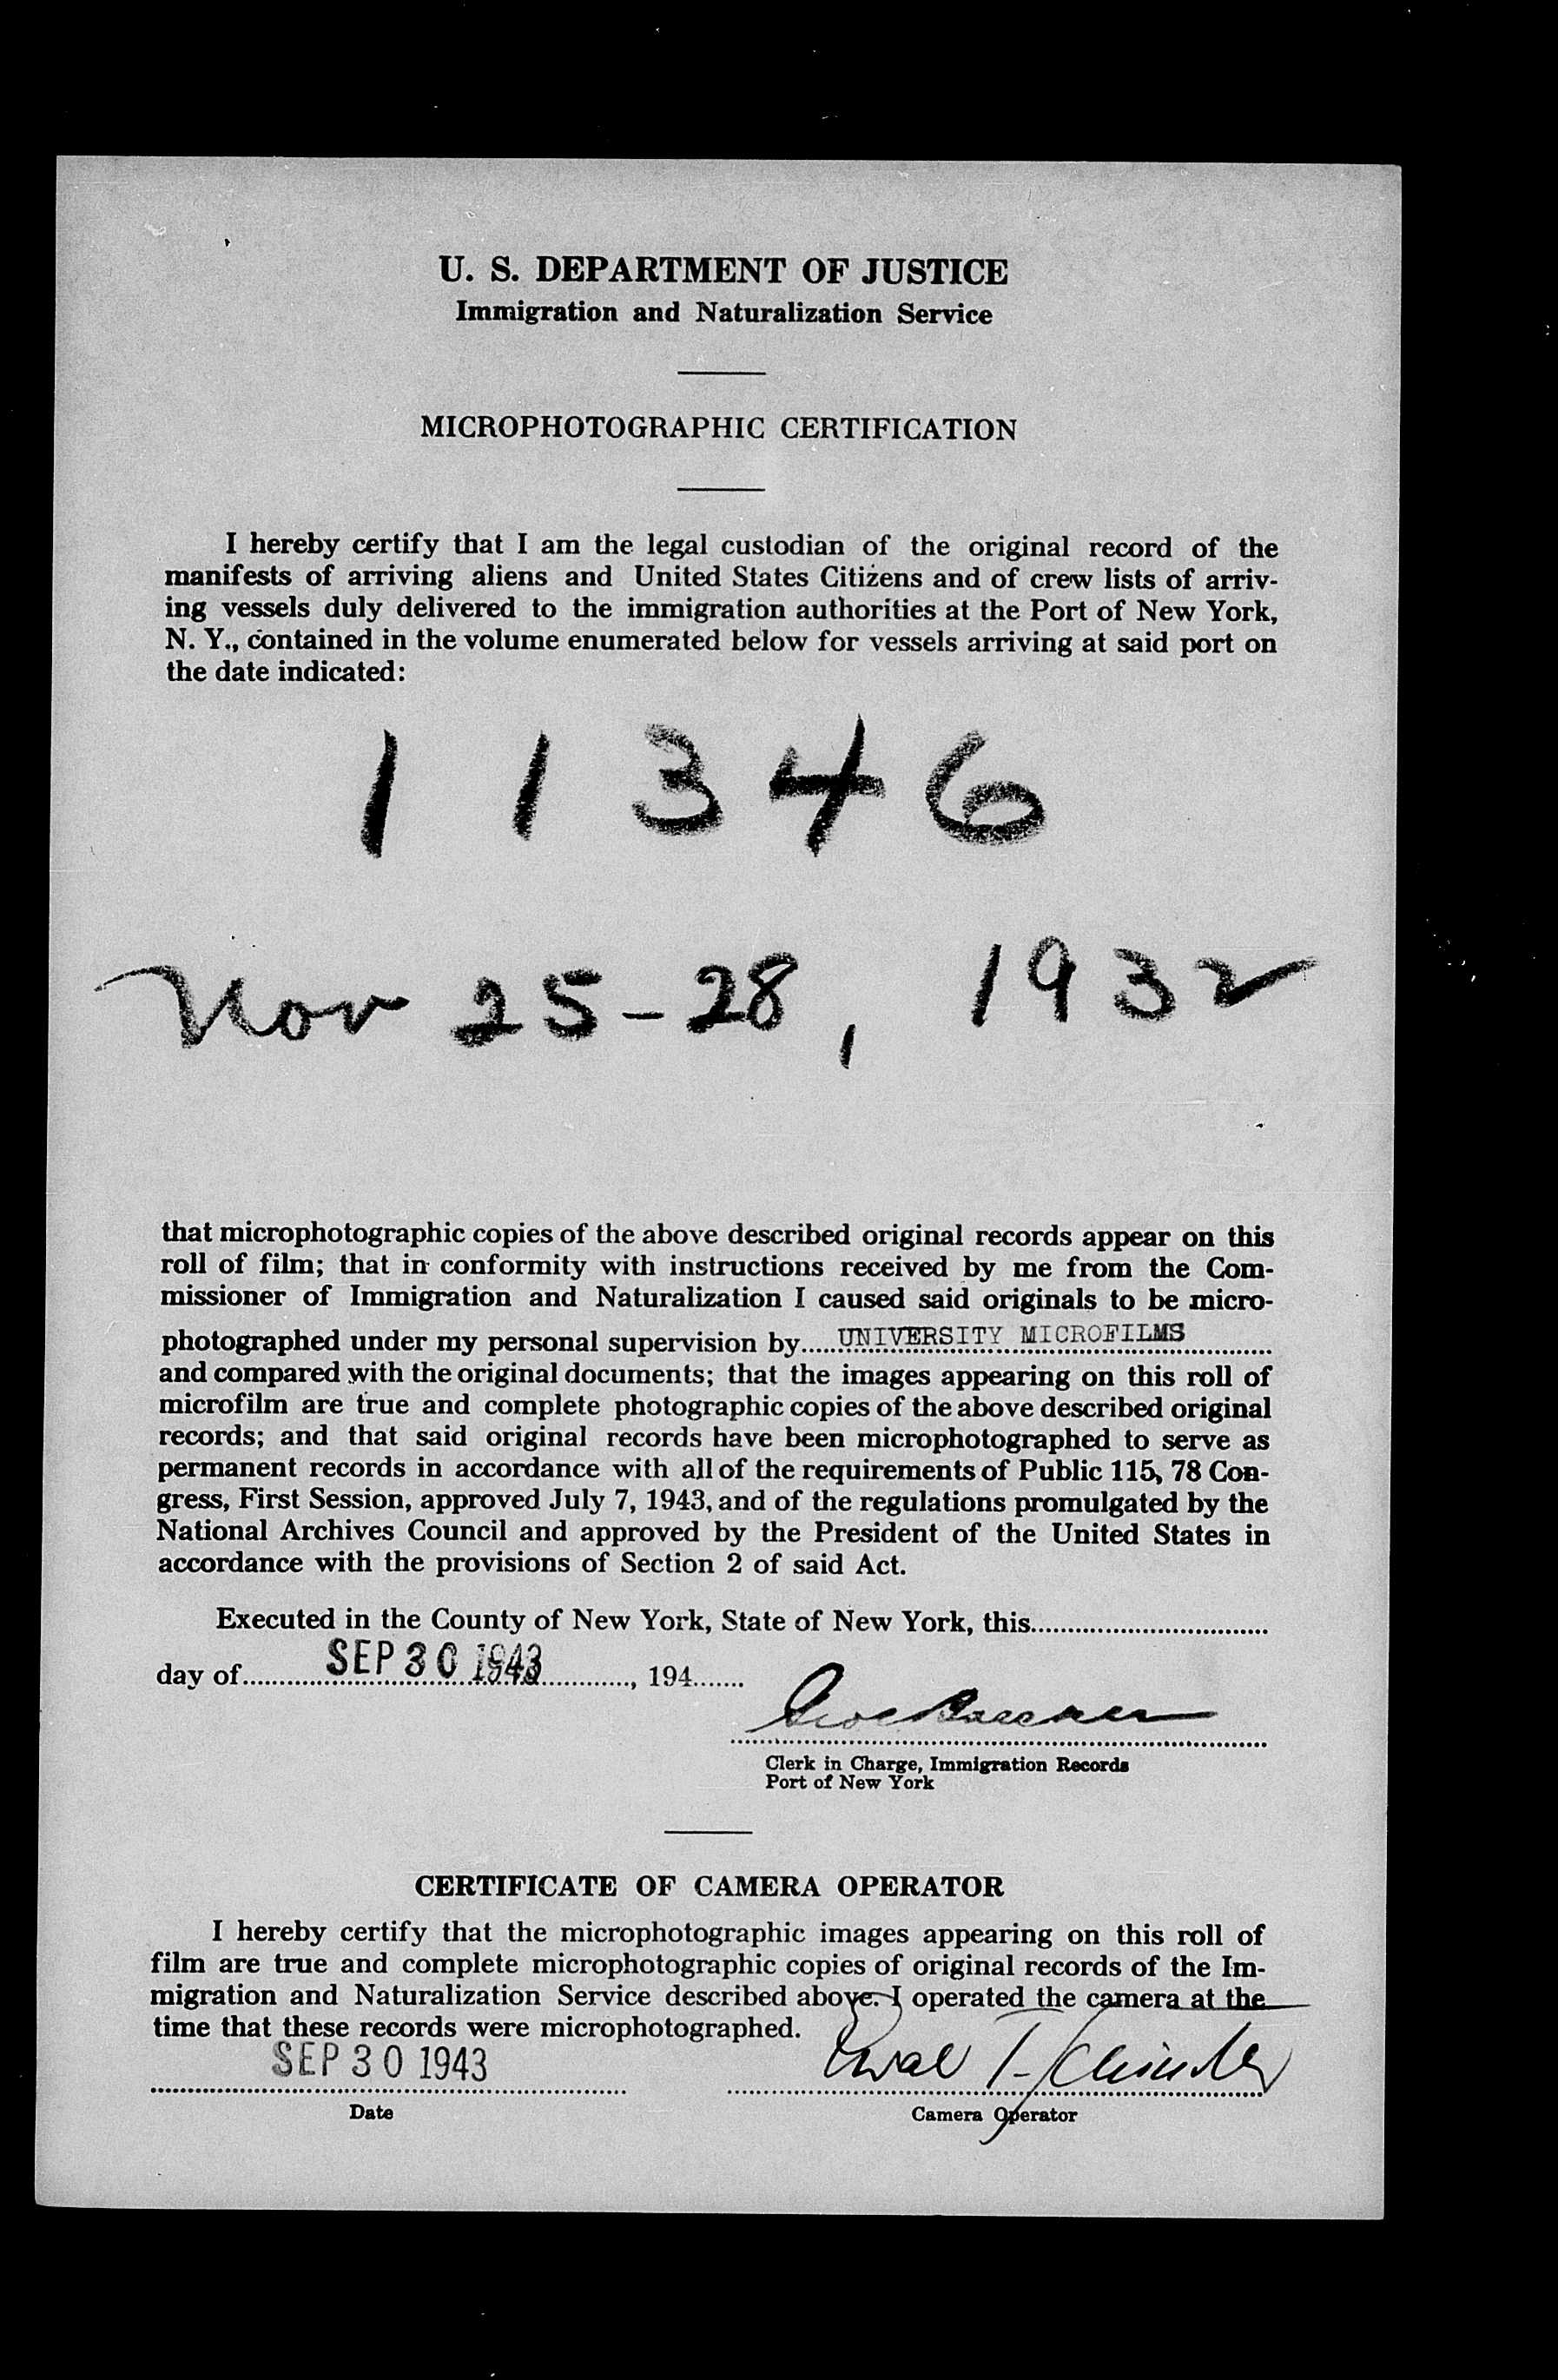 U. S. DEPARTMENT OF JUSTICE
Immigration and Naturalization Service
MICROPHOTOGRAPHIC CERTIFICATION
I hereby certify that I am the legal custodian of the original record of the
manifests of arriving aliens and United States Citizens and of crew lists of arriv-
ing vessels duly delivered to the immigration authorities at the Port of New York,
N. Y., contained in the volume enumerated below for vessels arriving at said port on
the date indicated:
11346
Nov 25-28, 1932
that microphotographic copies of the above described original records appear on this
roll of film; that in conformity with instructions received by me from the Com-
missioner of Immigration and Naturalization I caused said originals to be micro-
photographed under my personal supervision by.....UNIVERSITY MICROFILMS
and compared with the original documents; that the images appearing on this roll of
microfilm are true and complete photographic copies of the above described original
records; and that said original records have been microphotographed to serve as
permanent records in accordance with all of the requirements of Public 115, 78 Con-
gress, First Session, approved July 7, 1943, and of the regulations promulgated by the
National Archives Council and approved by the President of the United States in
accordance with the provisions of Section 2 of said Act.
Executed in the County of New York, State of New York, this
day of SEP 30 1943, 194
Clerk in Charge, Immigration Records
Port of New York
CERTIFICATE OF CAMERA OPERATOR
I hereby certify that the microphotographic images appearing on this roll of
film are true and complete microphotographic copies of original records of the Im-
migration and Naturalization Service described above. I operated the camera at the
time that these records were microphotographed.
SEP 30 1943
Date
Camera Operator